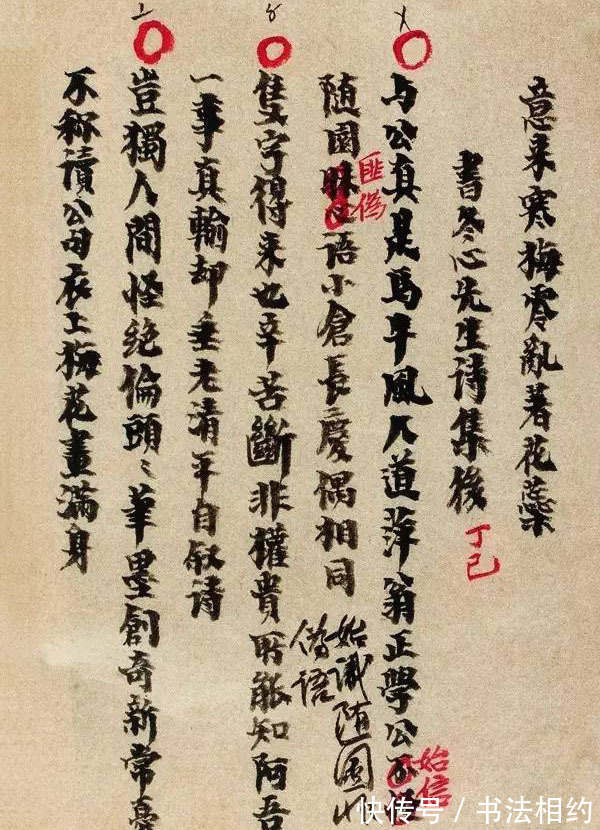 意来寒梅零亂著花蕊
書冬心先生诗集後
丁巳
与公真是馬牛風人道萍翁正學公
始信
随園語小倉長慶偶相同
匪偽
始識随園
偽语
隻字得来也辛苦斷非權貴所能知阿吾
一事真輸却垂老清平自叙诗
豈獨人間怪绝倫頭〻筆墨創奇新常憂
不称讀公句衣上梅花畫滿身
快传号 / 书法相约